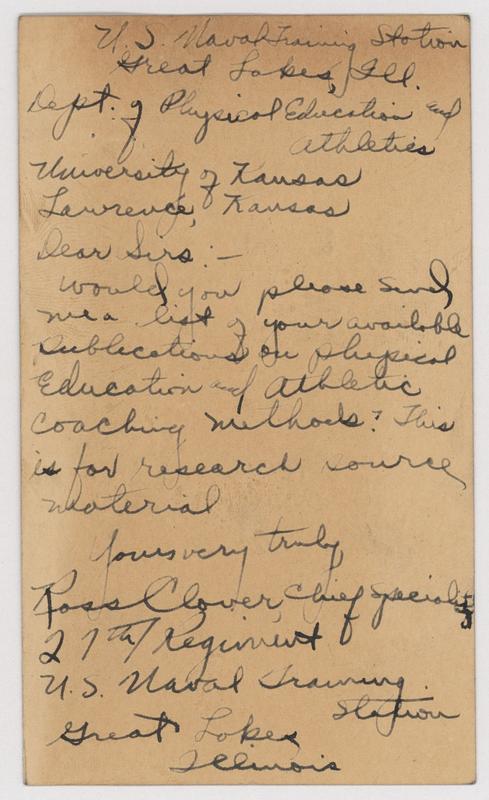 U. S. Naval Training Station
Great Lakes, Ill.
Dept. of Physical Education and
Athletics
University of Kansas
Lawrence, Kansas
Dear Sirs:—
Would you please send
me a list of your available
publications on physical
Education and Athletic
Coaching methods? This
is for research source
material
Yours very truly
Ross Clover, Chief Specialist
27th Regiment
U.S. Naval Training
Station
Great Lakes
Illinois